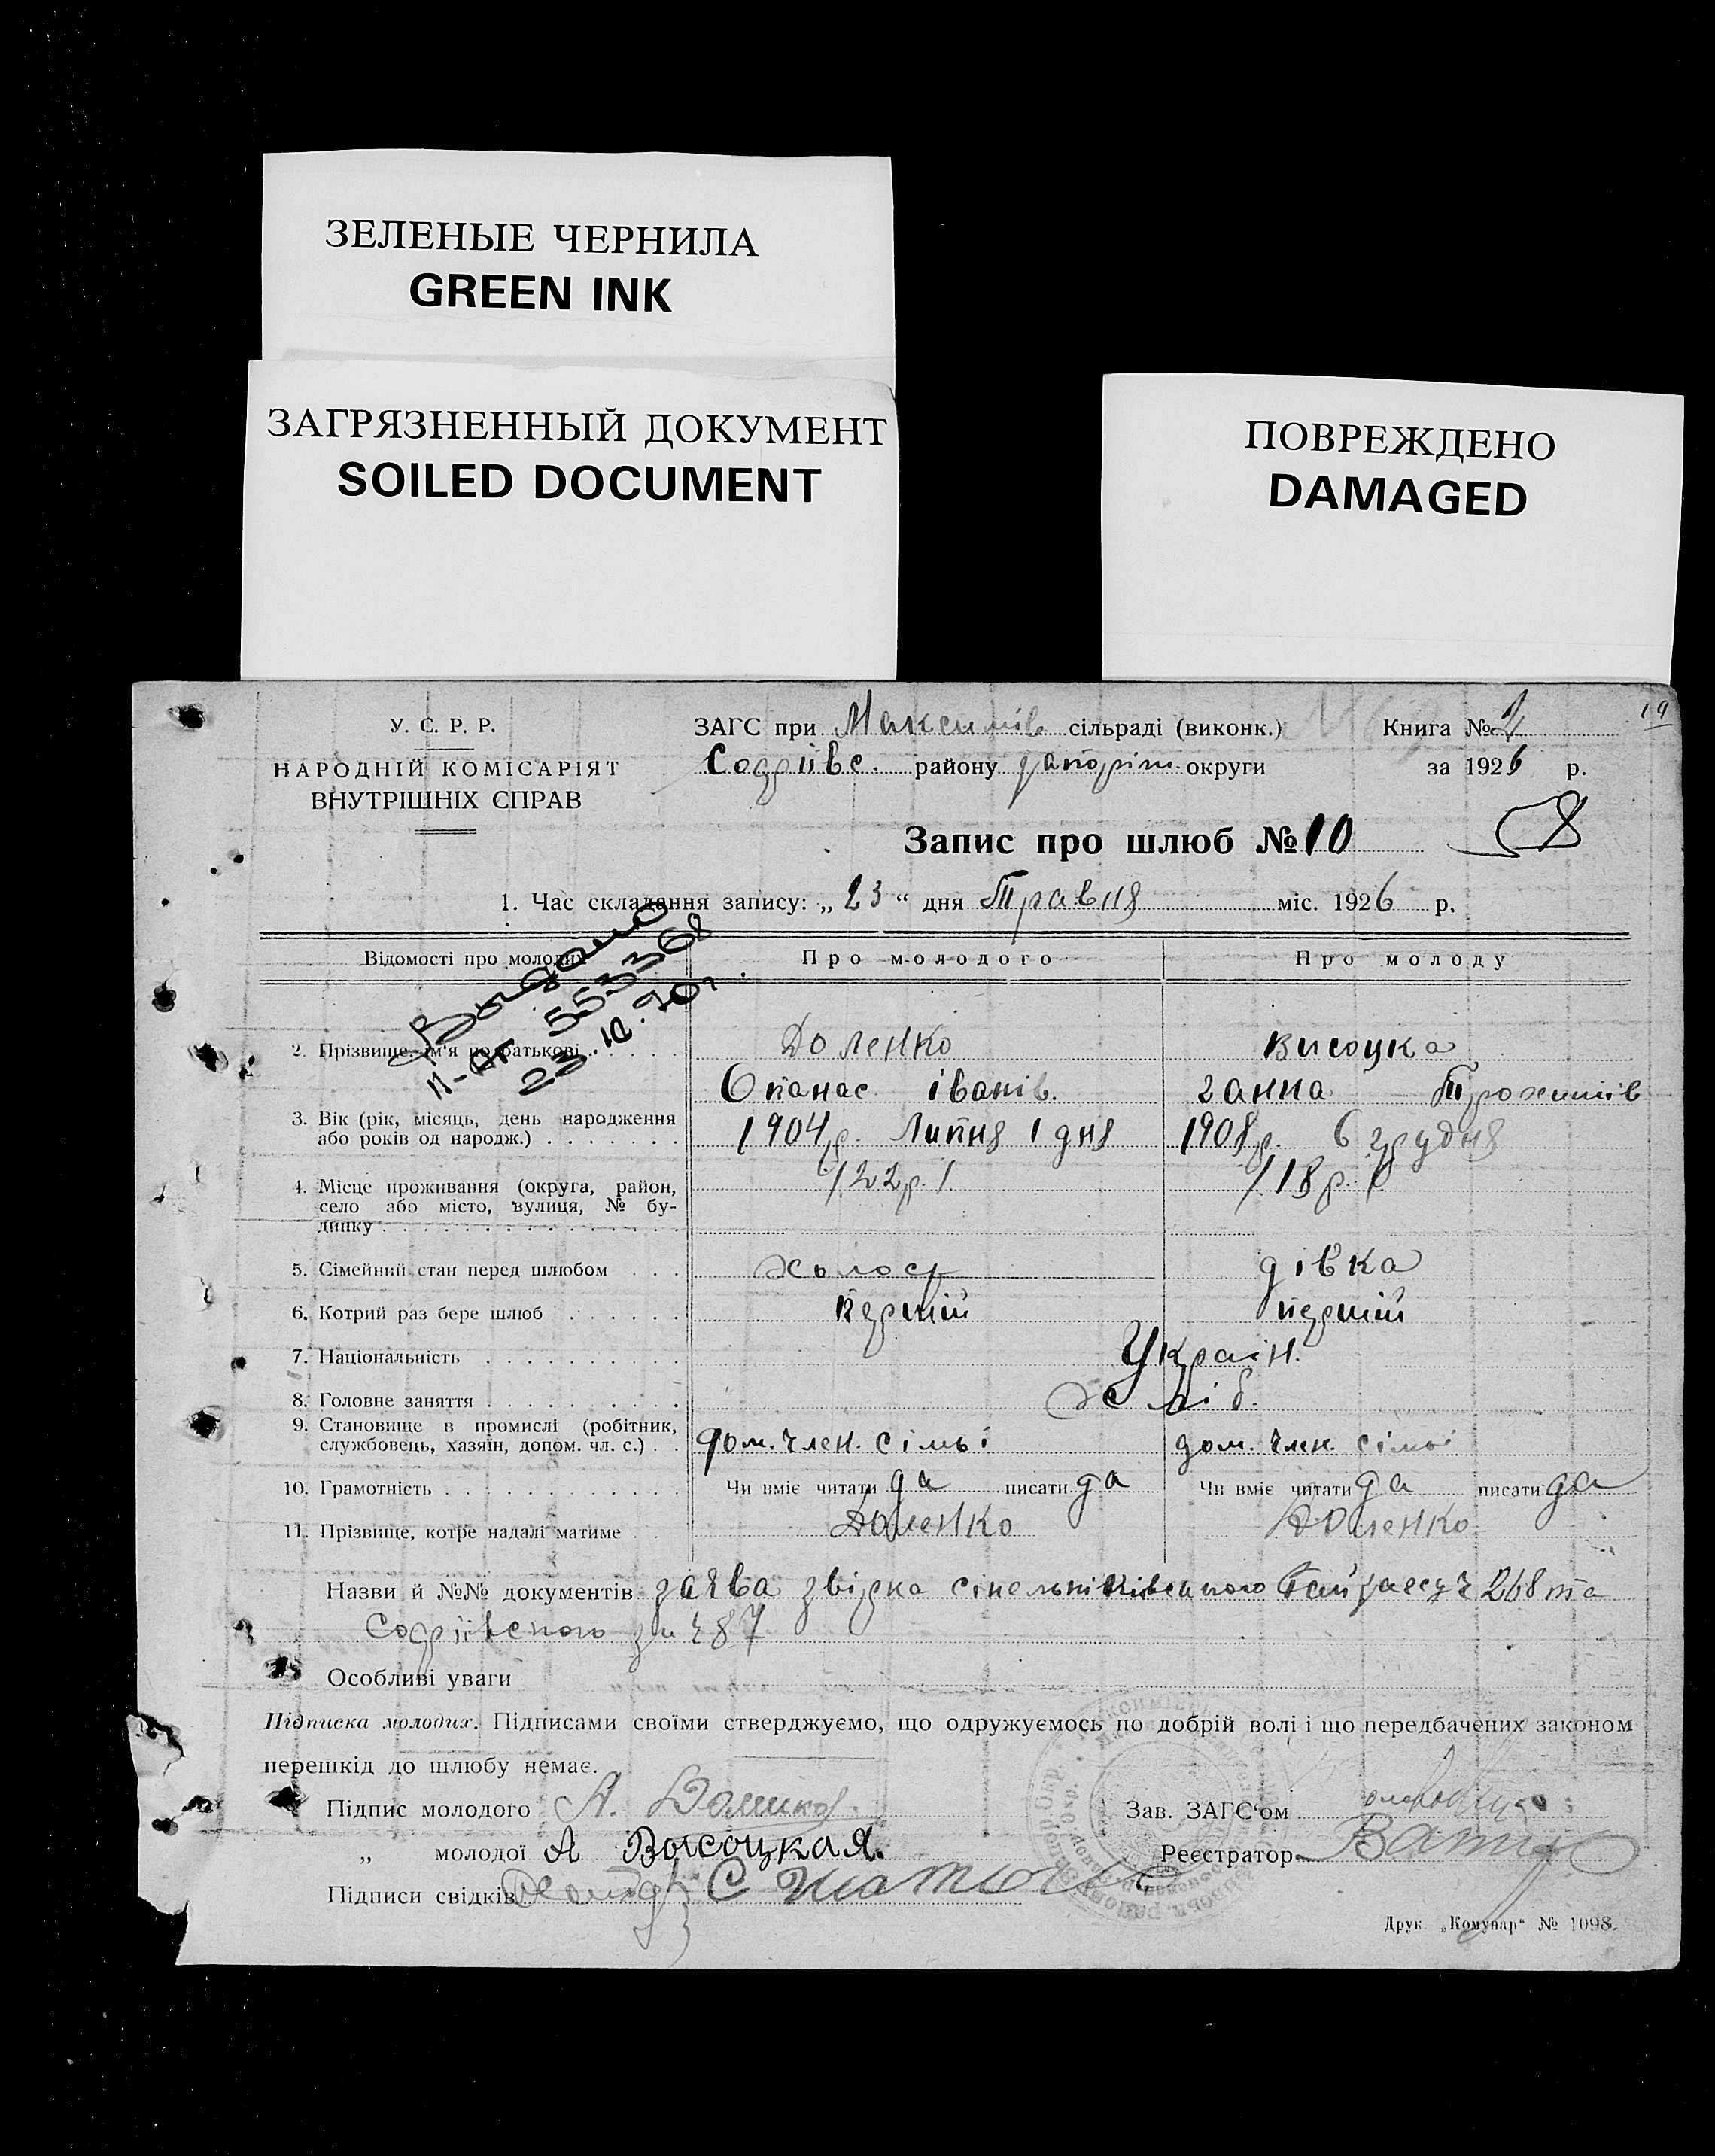 ЗЕЛЕНЫЕ ЧЕРНИЛА
GREEN INK
ЗАГРЯЗНЕННЫЙ ДОКУМЕНТ
SOILED DOCUMENT
ПОВРЕЖДЕНО
DAMAGED
19
У. С. Р. Р.
НАРОДНІЙ КОМІСАРІЯТ
ВНУТРІШНІХ СПРАВ
ЗАГС при сільраді (виконк.)
району округи
Книга №
за 1926 р.
Запис про шлюб № 10
1. Час складання запису: „23“ дня Травня міс. 1926 р.
Відомості про молодих Про молодого Про молоду
Выдано
553368
2. Прізвище, ім'я по батькові Доленко Висоцка
Опанас Іванів. Ганна
3. Вік (рік, місяць, день народження 1904 р. Липня 1 дня 1908 р. 6 грудня
або років од народж.) /22 р./ /18 р./
4. Місце проживання (округа, район,
село або місто, вулиця, № бу-
динку
5. Сімейний стан перед шлюбом холост дівка
6. Котрий раз бере шлюб перший перший
7. Національність Україн.
8. Головне заняття хліб.
9. Становище в промислі (робітник, дом. член. сімьі дом. член. сімьі
службовець, хазяїн, допом. чл. с.)
10. Грамотність Чи вміє читати да писати да Чи вміє читати да писати да
11. Прізвище, котре надалі матиме Доленко Доленко
Назви й №№ документів заява звідка 268 та
487
Особливі уваги
Підписка молодих. Підписами своїми стверджуємо, що одружуємось по добрій волі і що передбачених законом
перешкід до шлюбу немає.
Підпис молодого А.
„ молодої А Высоцкая.
Підписи свідків
Зав. ЗАГС'ом
Реєстратор
Друк. „Комунар“ № 1098.